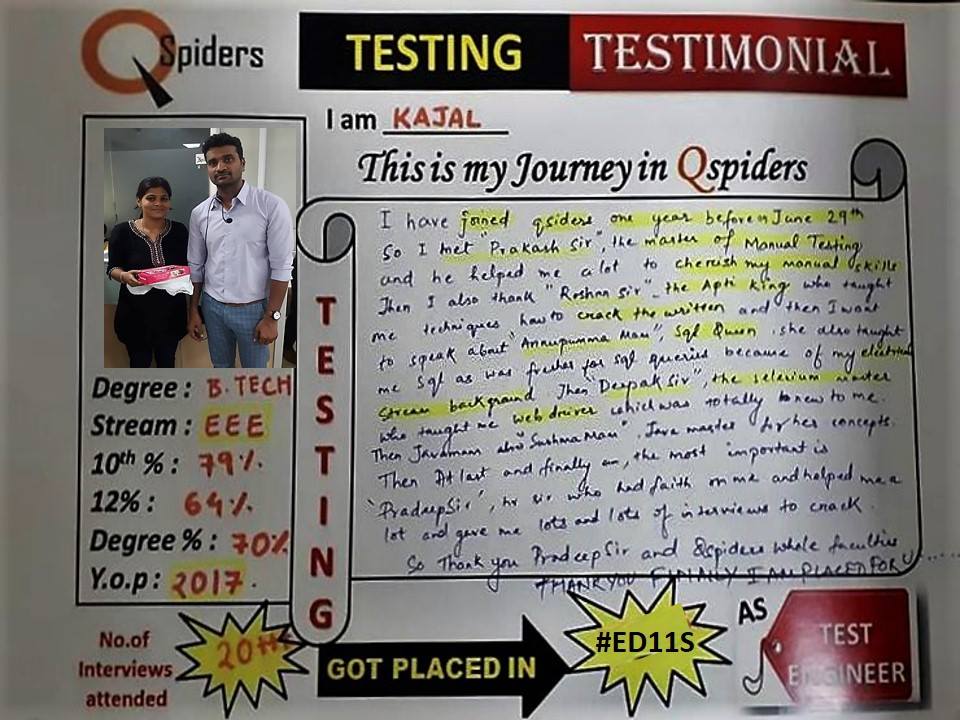 QSpiders
TESTING TESTIMONIAL
I am KAJAL
This is my Journey in Qspiders
I have joined qsiders one year before on June 29th
So I met "Prakash Sir" the master of Manual Testing
and he helped me a lot to cherish my manual skills
Then I also thank "Roshan Sir" the Apti King who taught
me techniques how to crack the written and then I want
to speak about "Annupumma Mam", Sql Queen. she also taught
me Sql as was fresher for sql queries because of my electrical
stream background. Then "Deepak Sir", the selenium master
who taught me webdriver which was totally to new to me.
Then Javamam also "Sushma Mam". Java master for her concepts.
Then At last and finally the most important is
"Pradeep Sir", hr sir who had faith on me and helped me a
lot and gave me lots and lots of interviews to crack.
So Thank you Pradeep Sir and Qspiders whole faculties
THANK YOU FINALLY I AM PLACED FOR U.....
TESTING
Degree : B.TECH
Stream : EEE
10th % : 79%.
12% : 64%.
Degree % : 70%
Y.o.p : 2017.
No.of
Interviews
attended
20
GOT PLACED IN
#ED11S
AS
TEST
ENGINEER